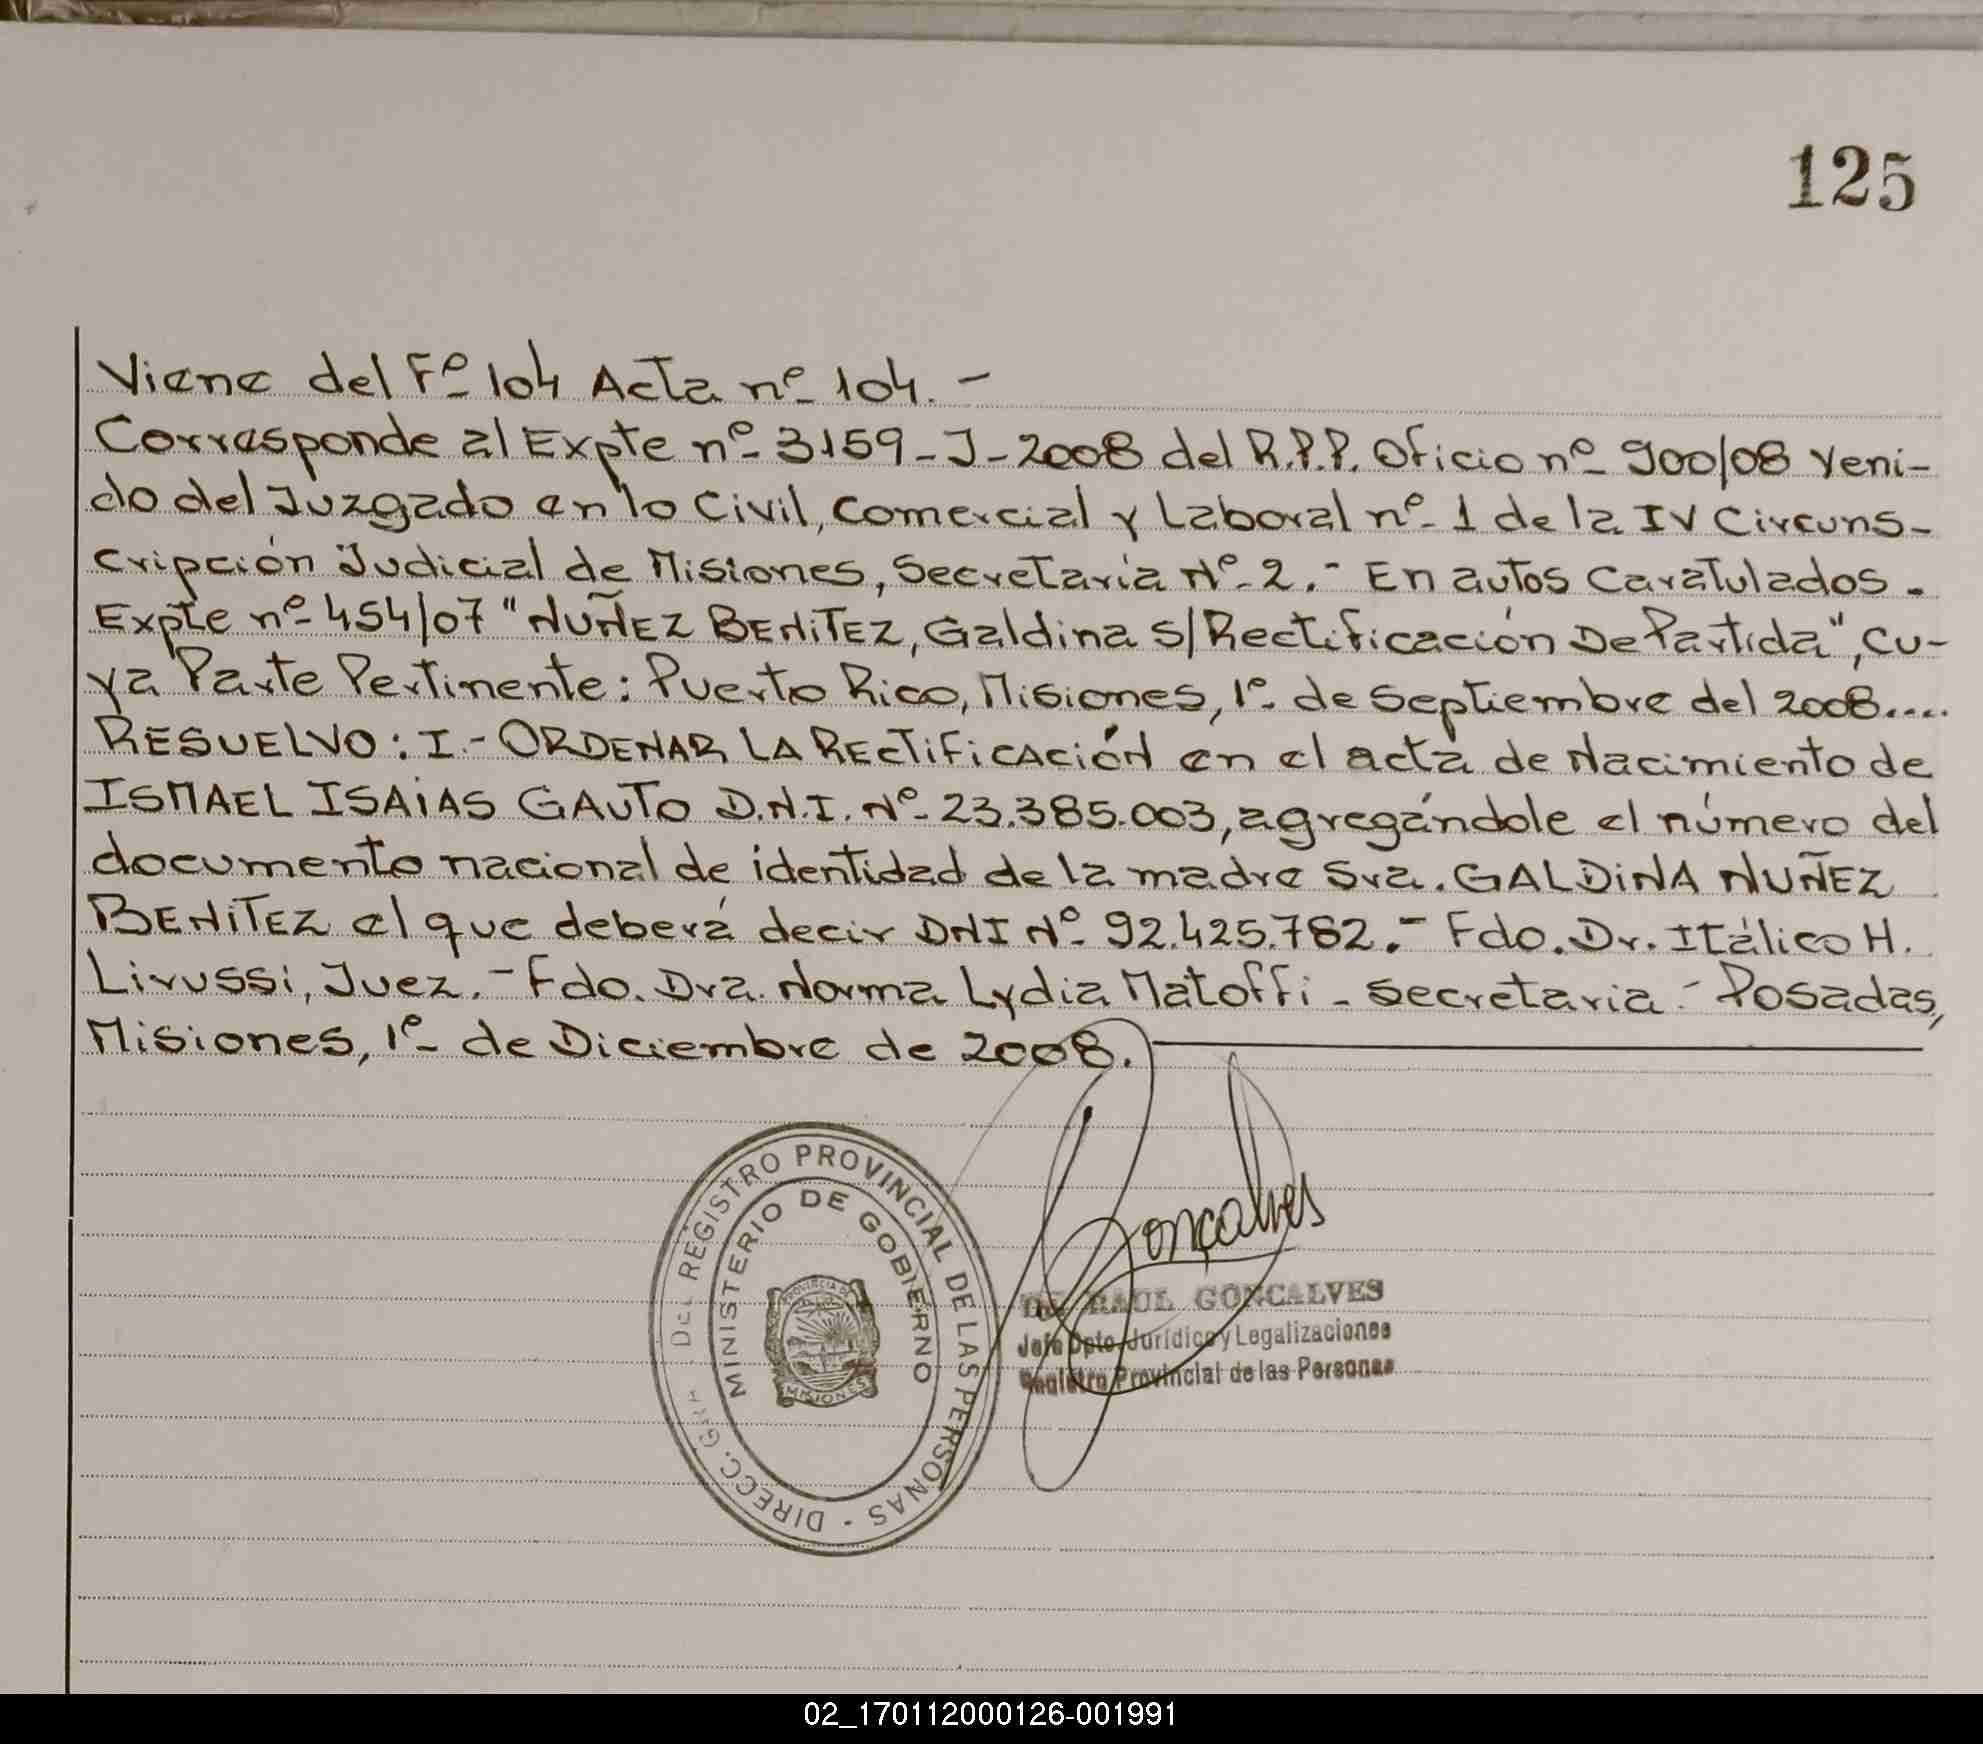 125
Viene del Fº 104 Acta nº 104.-
Corresponde al Expte nº 3159-J-2008 del R.P.P. Oficio nº 900/08 veni-
do del Juzgado en lo Civil, Comercial y Laboral nº 1 de la IV Circuns-
cripción Judicial de Misiones, Secretaría Nº 2.- En autos Caratulados.
Expte nº 454/07 "NUÑEZ BENITEZ, Galdina s/Rectificación De Partida", cu-
ya Parte Pertinente: Puerto Rico, Misiones, 1º de Septiembre del 2008....
RESUELVO: I.- ORDENAR LA RECTIFICACIÓN en el acta de Nacimiento de
ISMAEL ISAIAS GAUTO D.N.I. Nº 23.385.003, agregándole el número del
documento nacional de identidad de la madre Sra. GALDINA NUÑEZ
BENITEZ el que deberá decir DNI Nº 92.425.782.- Fdo. Dr. Itálico H.
Livussi, Juez.- Fdo. Dra. Norma Lydia Matoffi - Secretaria.- Posadas,
Misiones, 1º de Diciembre de 2008.
REGISTRO PROVINCIAL DE LAS PERSONAS - DIRECC. GRAL. DEL
MINISTERIO DE GOBIERNO
PROVINCIA DE
MISIONES
Gonçalves
RAUL GONCALVES
Jefe Dpto. Jurídico y Legalizaciones
Registro Provincial de las Personas
02_170112000126-001991